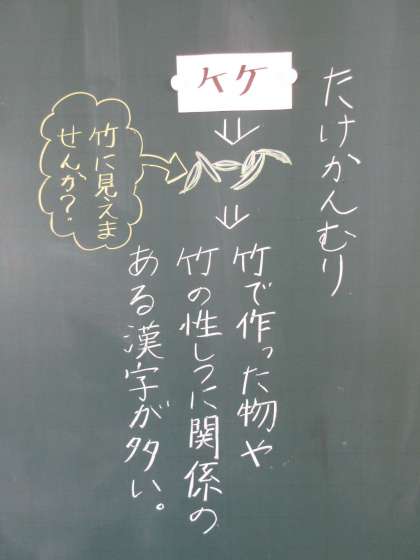 たけかんむり
⺮
竹に見えま
せんか？
竹で作った物や
竹の性しつに関係の
ある漢字が多い。